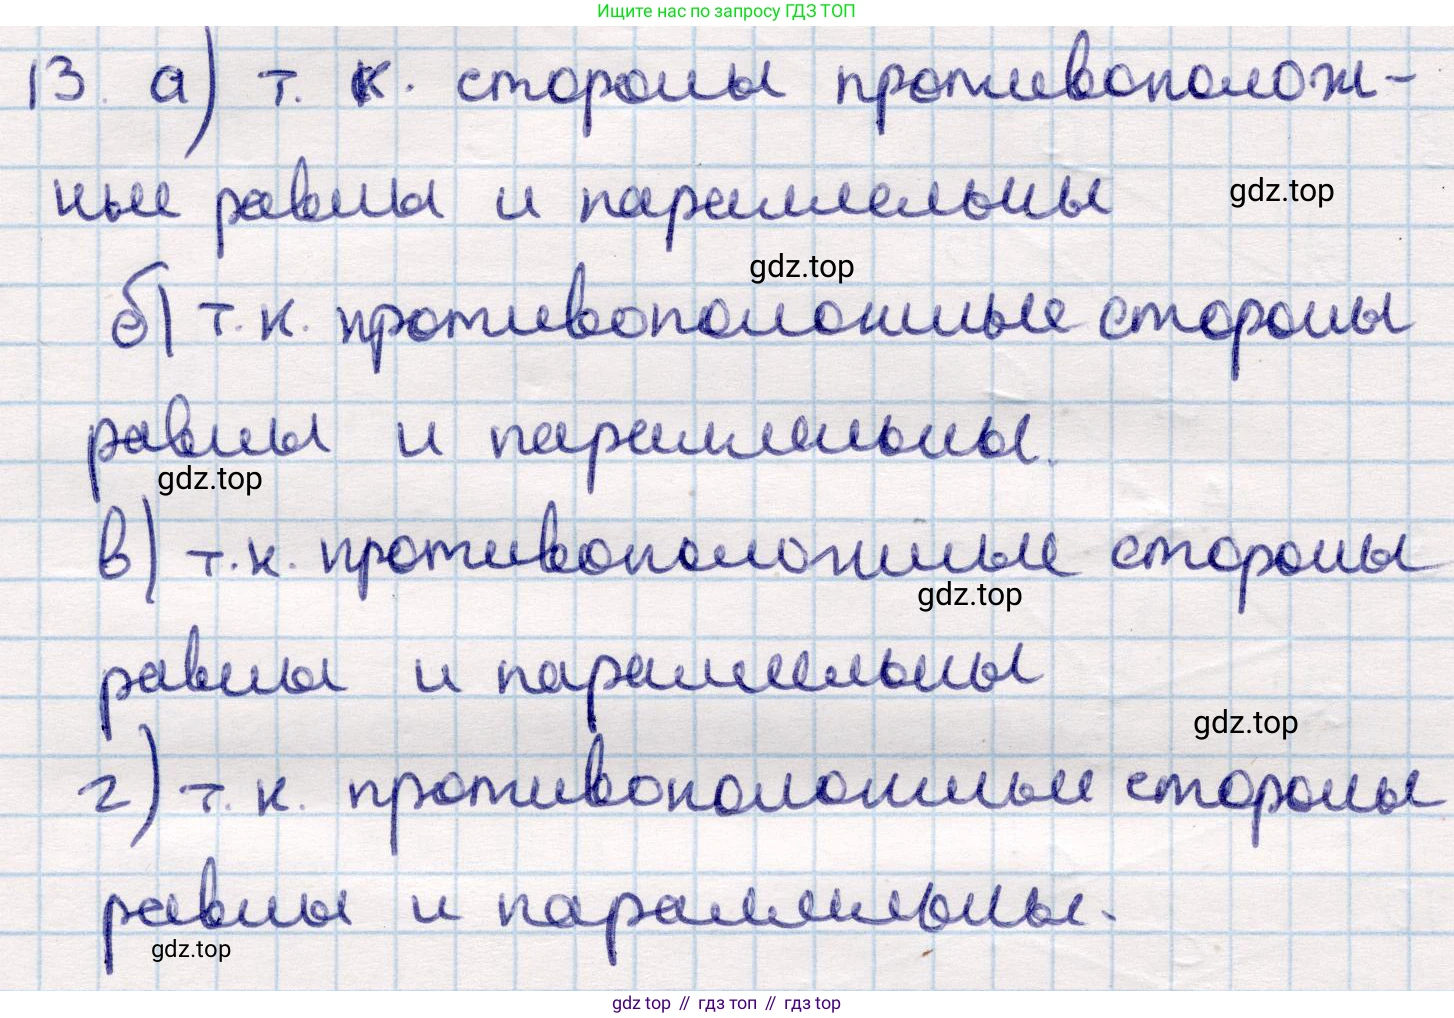 Ищите нас по запросу ГДЗ ТОП
13. а) т. к. стороны противополож-
ные равны и параллельны
gdz.top
gdz.top
б) т. к. противоположные стороны
равны и параллельны.
gdz.top
в) т. к. противоположные стороны
gdz.top
равны и параллельны
gdz.top
г) т. к. противоположные стороны
равны и параллельны.
gdz.top
gdz top // гдз топ // гдз top